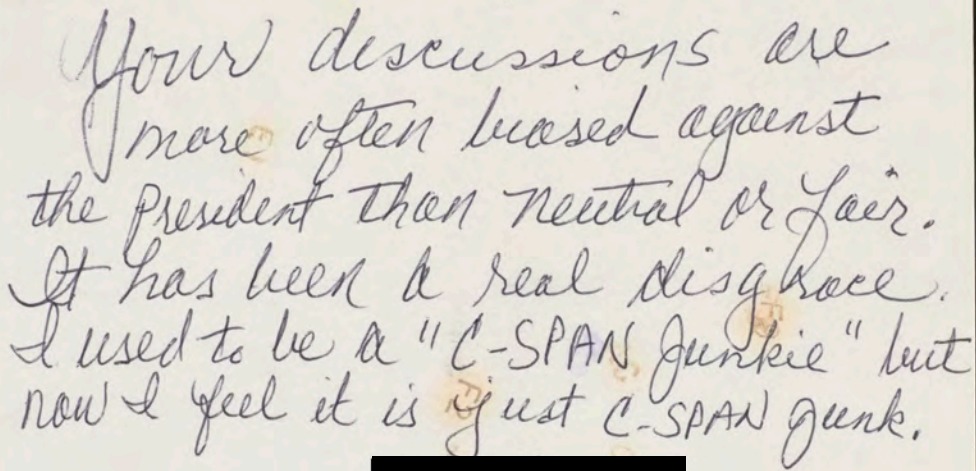 Your discussions are
more often biased against
the president than neutral or fair.
It has been a real disgrace.
I used to be a "C-SPAN Junkie" but
now I feel it is just C-SPAN junk.